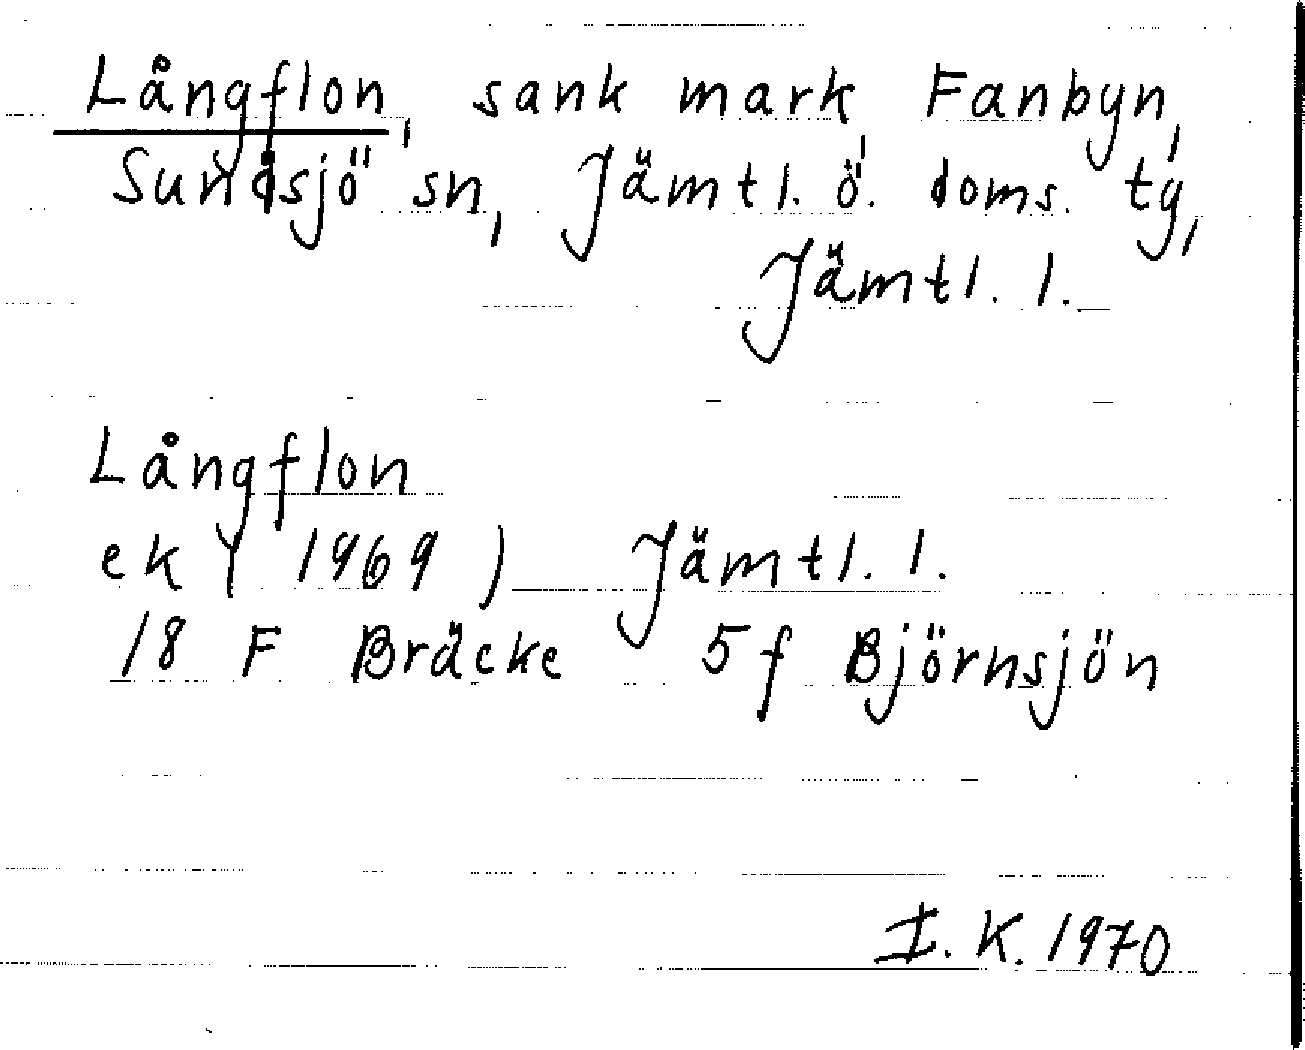 Långflon, sank mark, Fanbyn,
Sundsjö sn, Jämtl. ö. doms. tg,
Jämtl. l.
Långflon
ek ( 1969 ) Jämtl. l.
18 F Bräcke 5f Björnsjön
I. K. 1970